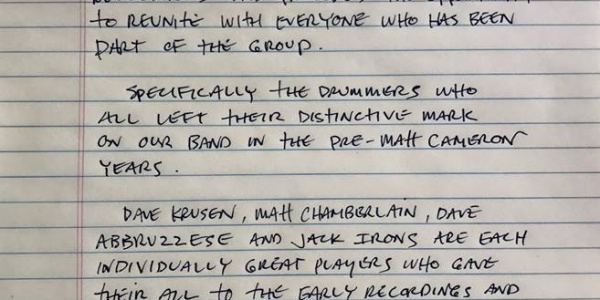 TO REUNITE WITH EVERYONE WHO HAS BEEN
PART OF THE GROUP.
SPECIFICALLY THE DRUMMERS WHO
ALL LEFT THEIR DISTINCTIVE MARK
ON OUR BAND IN THE PRE-MATT CAMERON
YEARS.
DAVE KRUSEN, MATT CHAMBERLAIN, DAVE
ABBRUZZESE AND JACK IRONS ARE EACH
INDIVIDUALLY GREAT PLAYERS WHO GAVE
THEIR ALL TO THE EARLY RECORDINGS AND